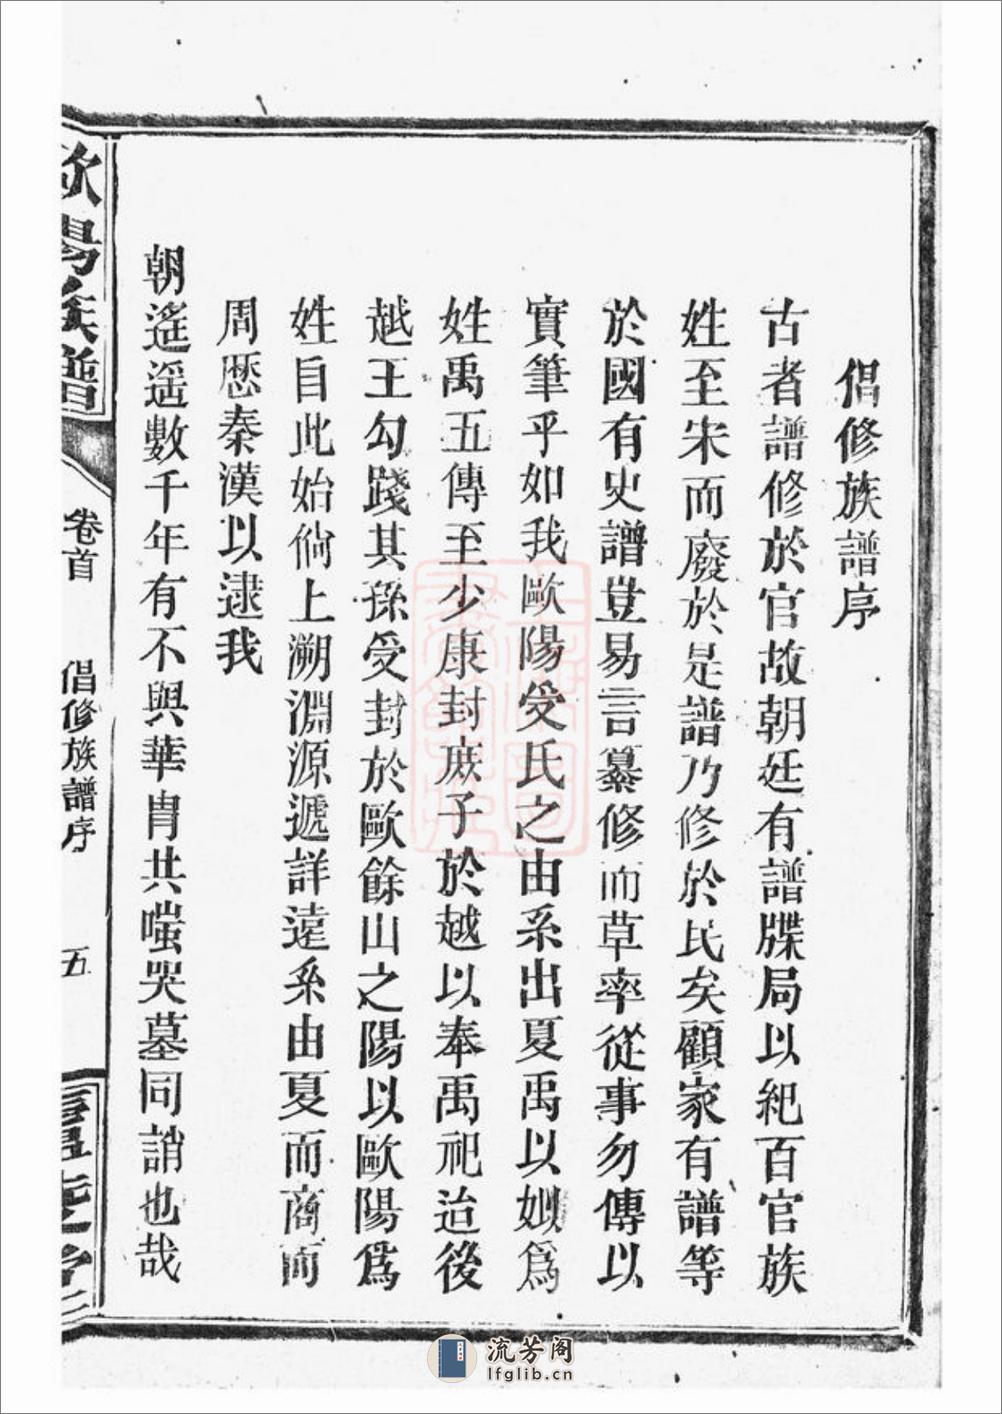 倡修族譜序
古者譜修於官故朝廷有譜牒局以紀百官族
姓至宋而廢於是譜乃修於民矣顧家有譜等
於國有史譜豈易言纂修而草率從事勿傳以
實筆乎如我歐陽受氏之由系出夏禹以姒爲
姓禹五傳至少康封庶子於越以奉禹祀迨後
越王勾踐其孫受封於歐餘山之陽以歐陽爲
姓自此始倘上溯淵源遞詳遠系由夏而商而
周歷秦漢以逮我
朝遙遙數千年有不與華胄共嗤哭墓同誚也哉
歐陽族譜
卷首
倡修族譜序
五
流芳阁
lfglib.cn